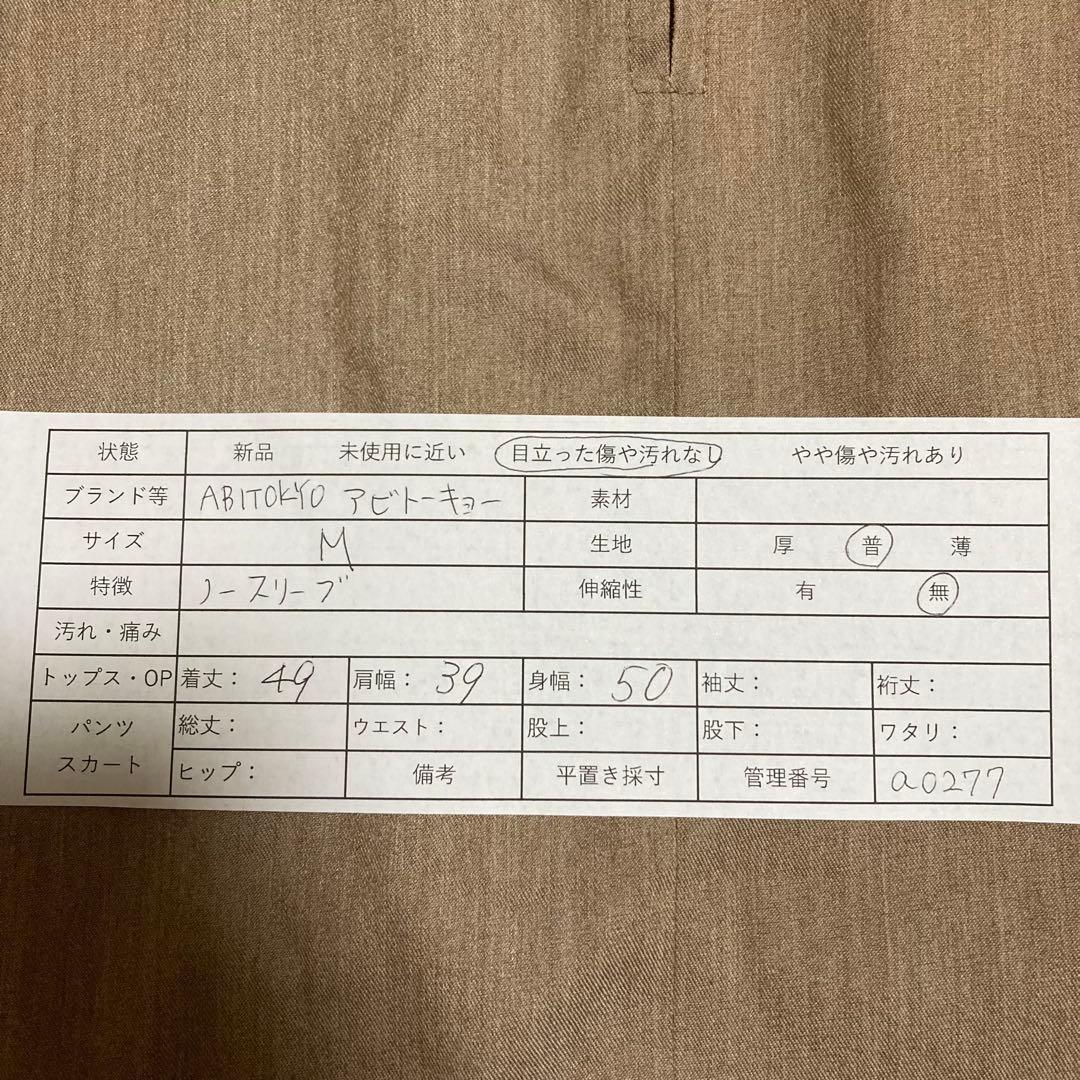 状態 新品 未使用に近い 目立った傷や汚れなし やや傷や汚れあり
ブランド等 ABITOKYO アビトーキョー 素材
サイズ M 生地 厚 普 薄
特徴 ノースリーブ 伸縮性 有 無
汚れ・痛み
トップス・OP 着丈: 49 肩幅: 39 身幅: 50 袖丈: 裄丈:
パンツ 総丈: ウエスト: 股上: 股下: ワタリ:
スカート ヒップ: 備考 平置き採寸 管理番号 a0277